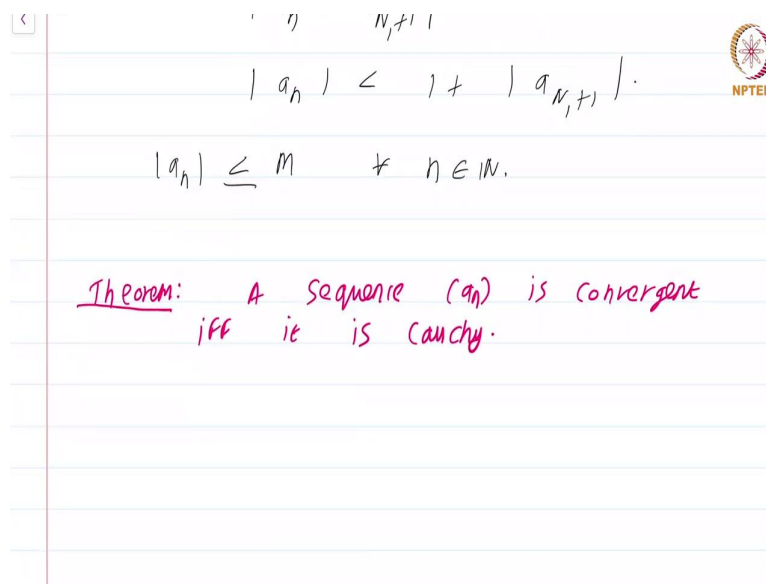 |a_n| < 1 + |a_{N_1+1}|.
NPTEL
|a_n| ≤ M ∀ n ∈ ℕ.
Theorem: A sequence (a_n) is convergent
iff it is Cauchy.